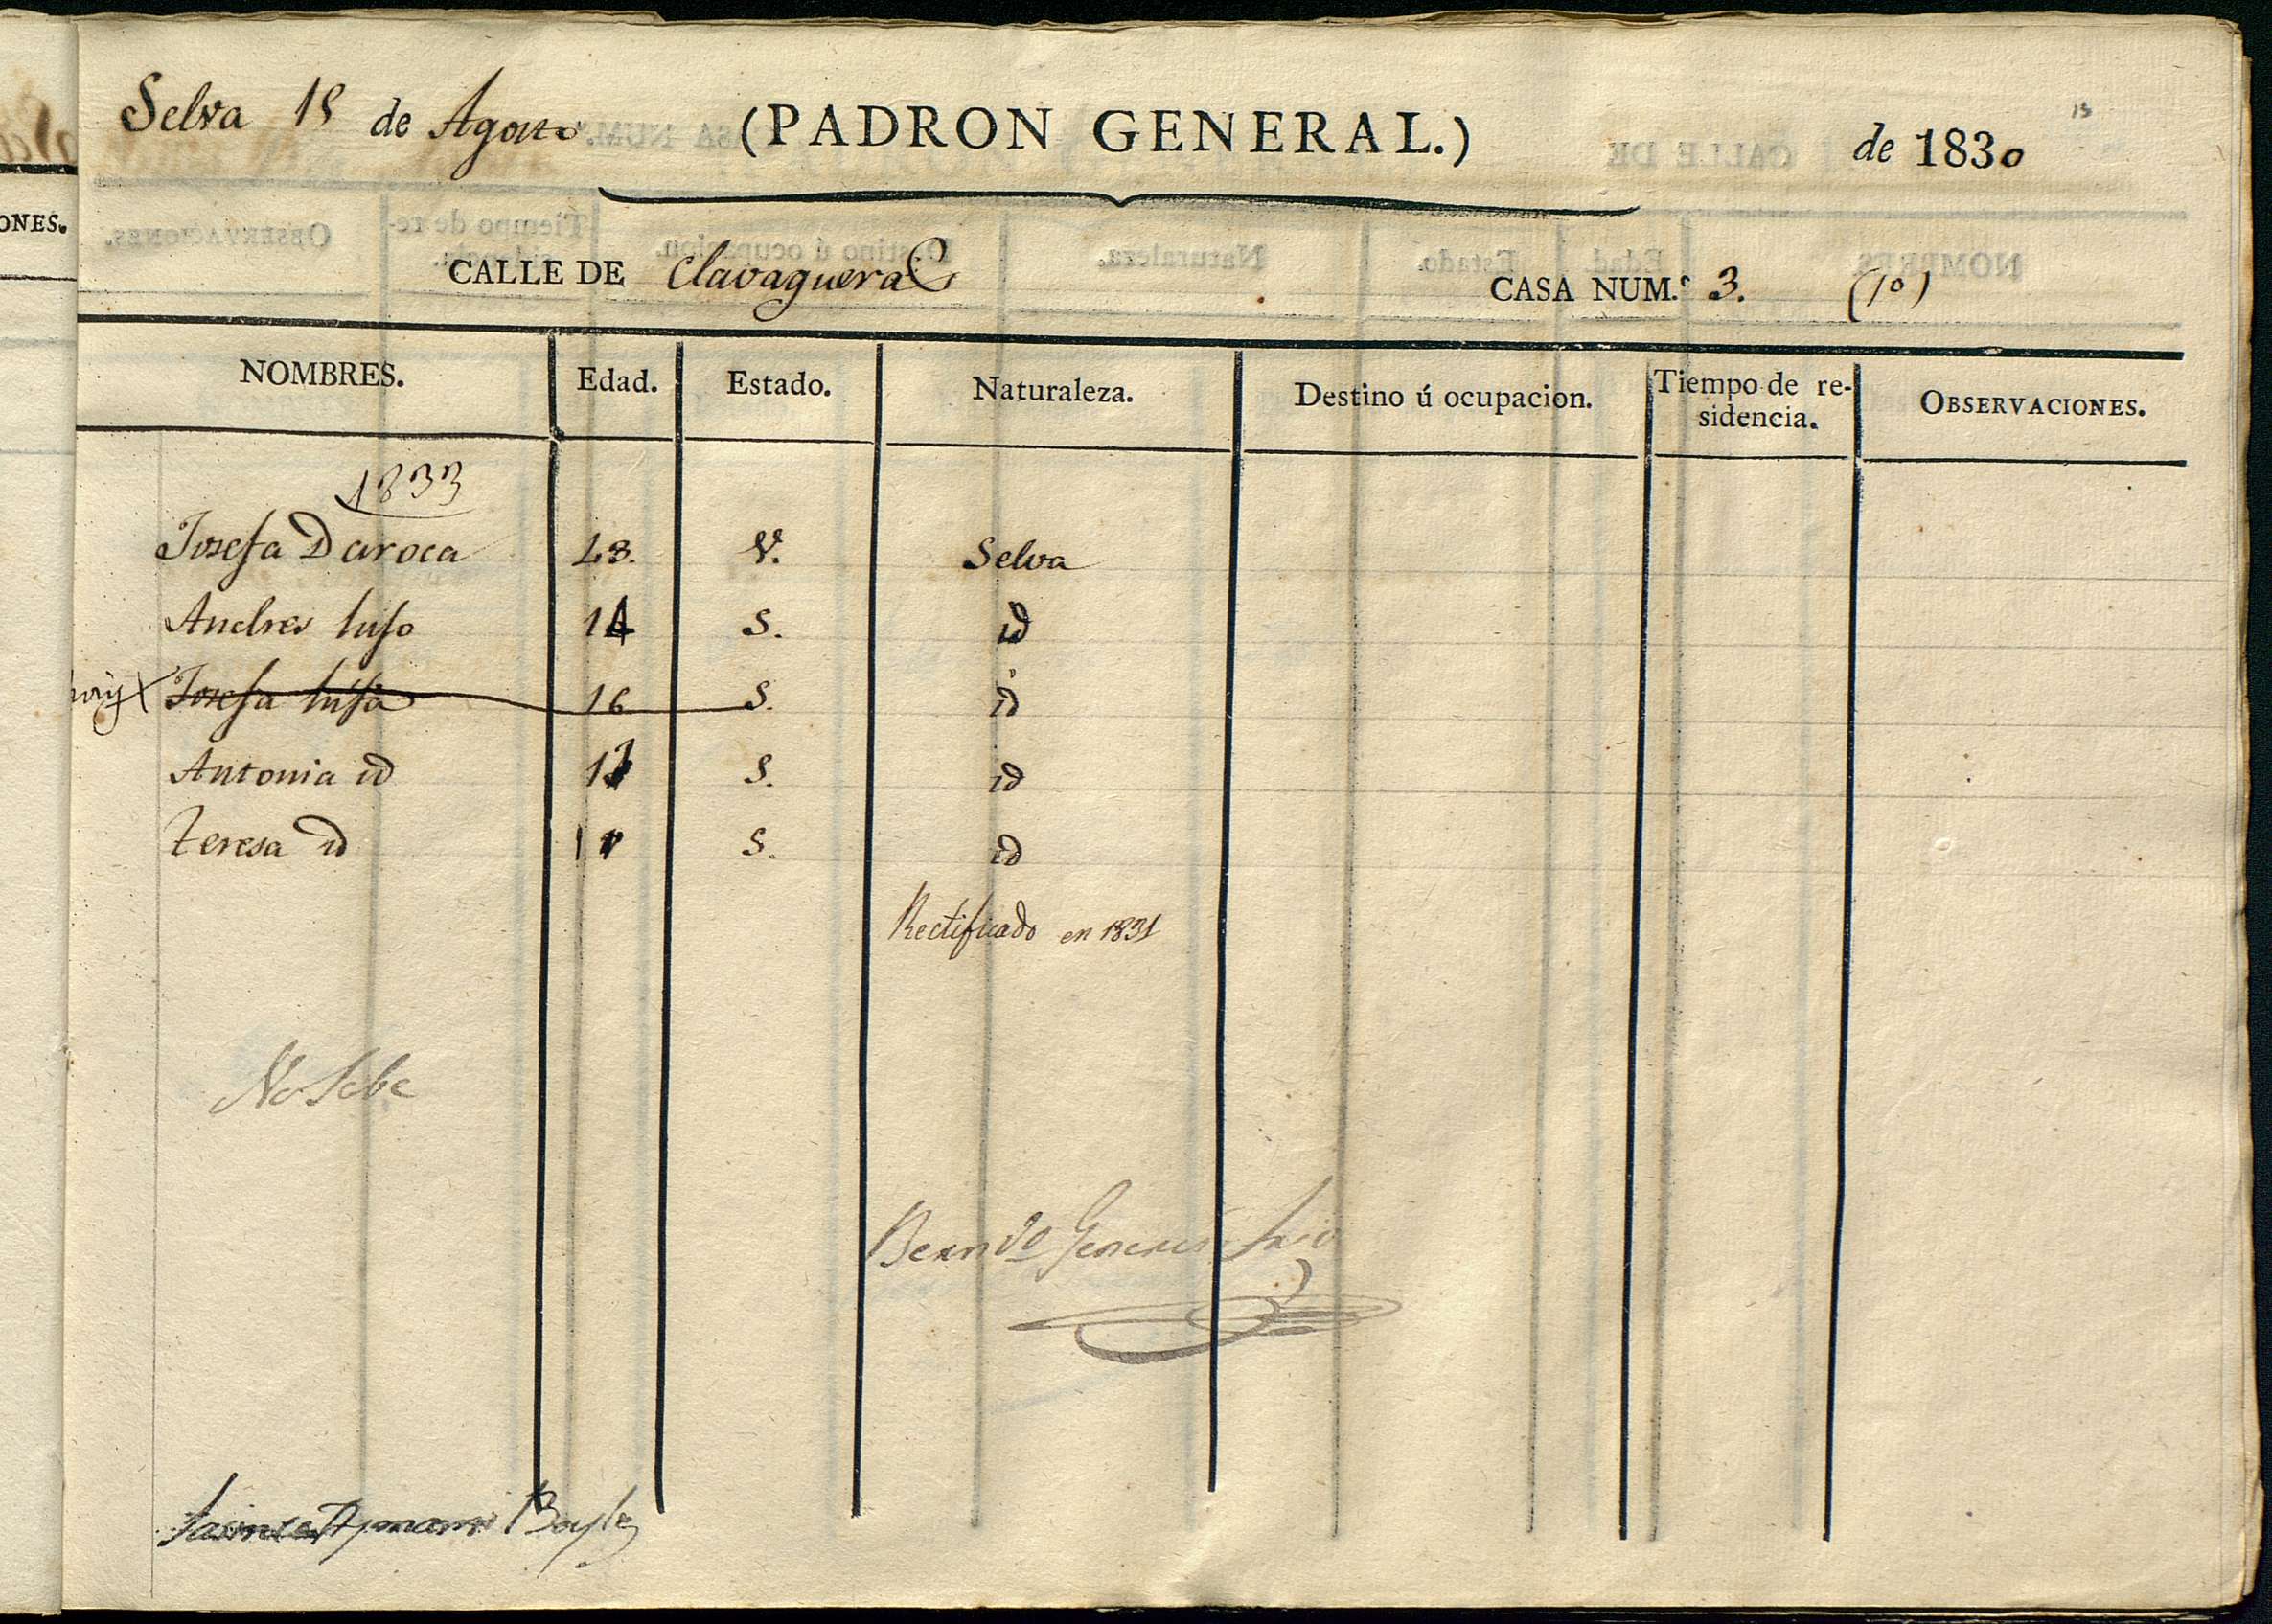 Selva 18 de Agosto (PADRON GENERAL.) de 1830
CALLE DE Clavaguera CASA NUM.º 3. (1º)
NOMBRES. Edad. Estado. Naturaleza. Destino ú ocupacion. Tiempo de re-sidencia. OBSERVACIONES.
1833
Josefa Daroca 48. V. Selva
Andres hijo 14 S. id
Josefa hija 16 S. id
Antonia id 13 S. id
Teresa id 11 S. id
Rectificado en 1831
No Sabe
Bern.do Srio
Bayle
ONES.